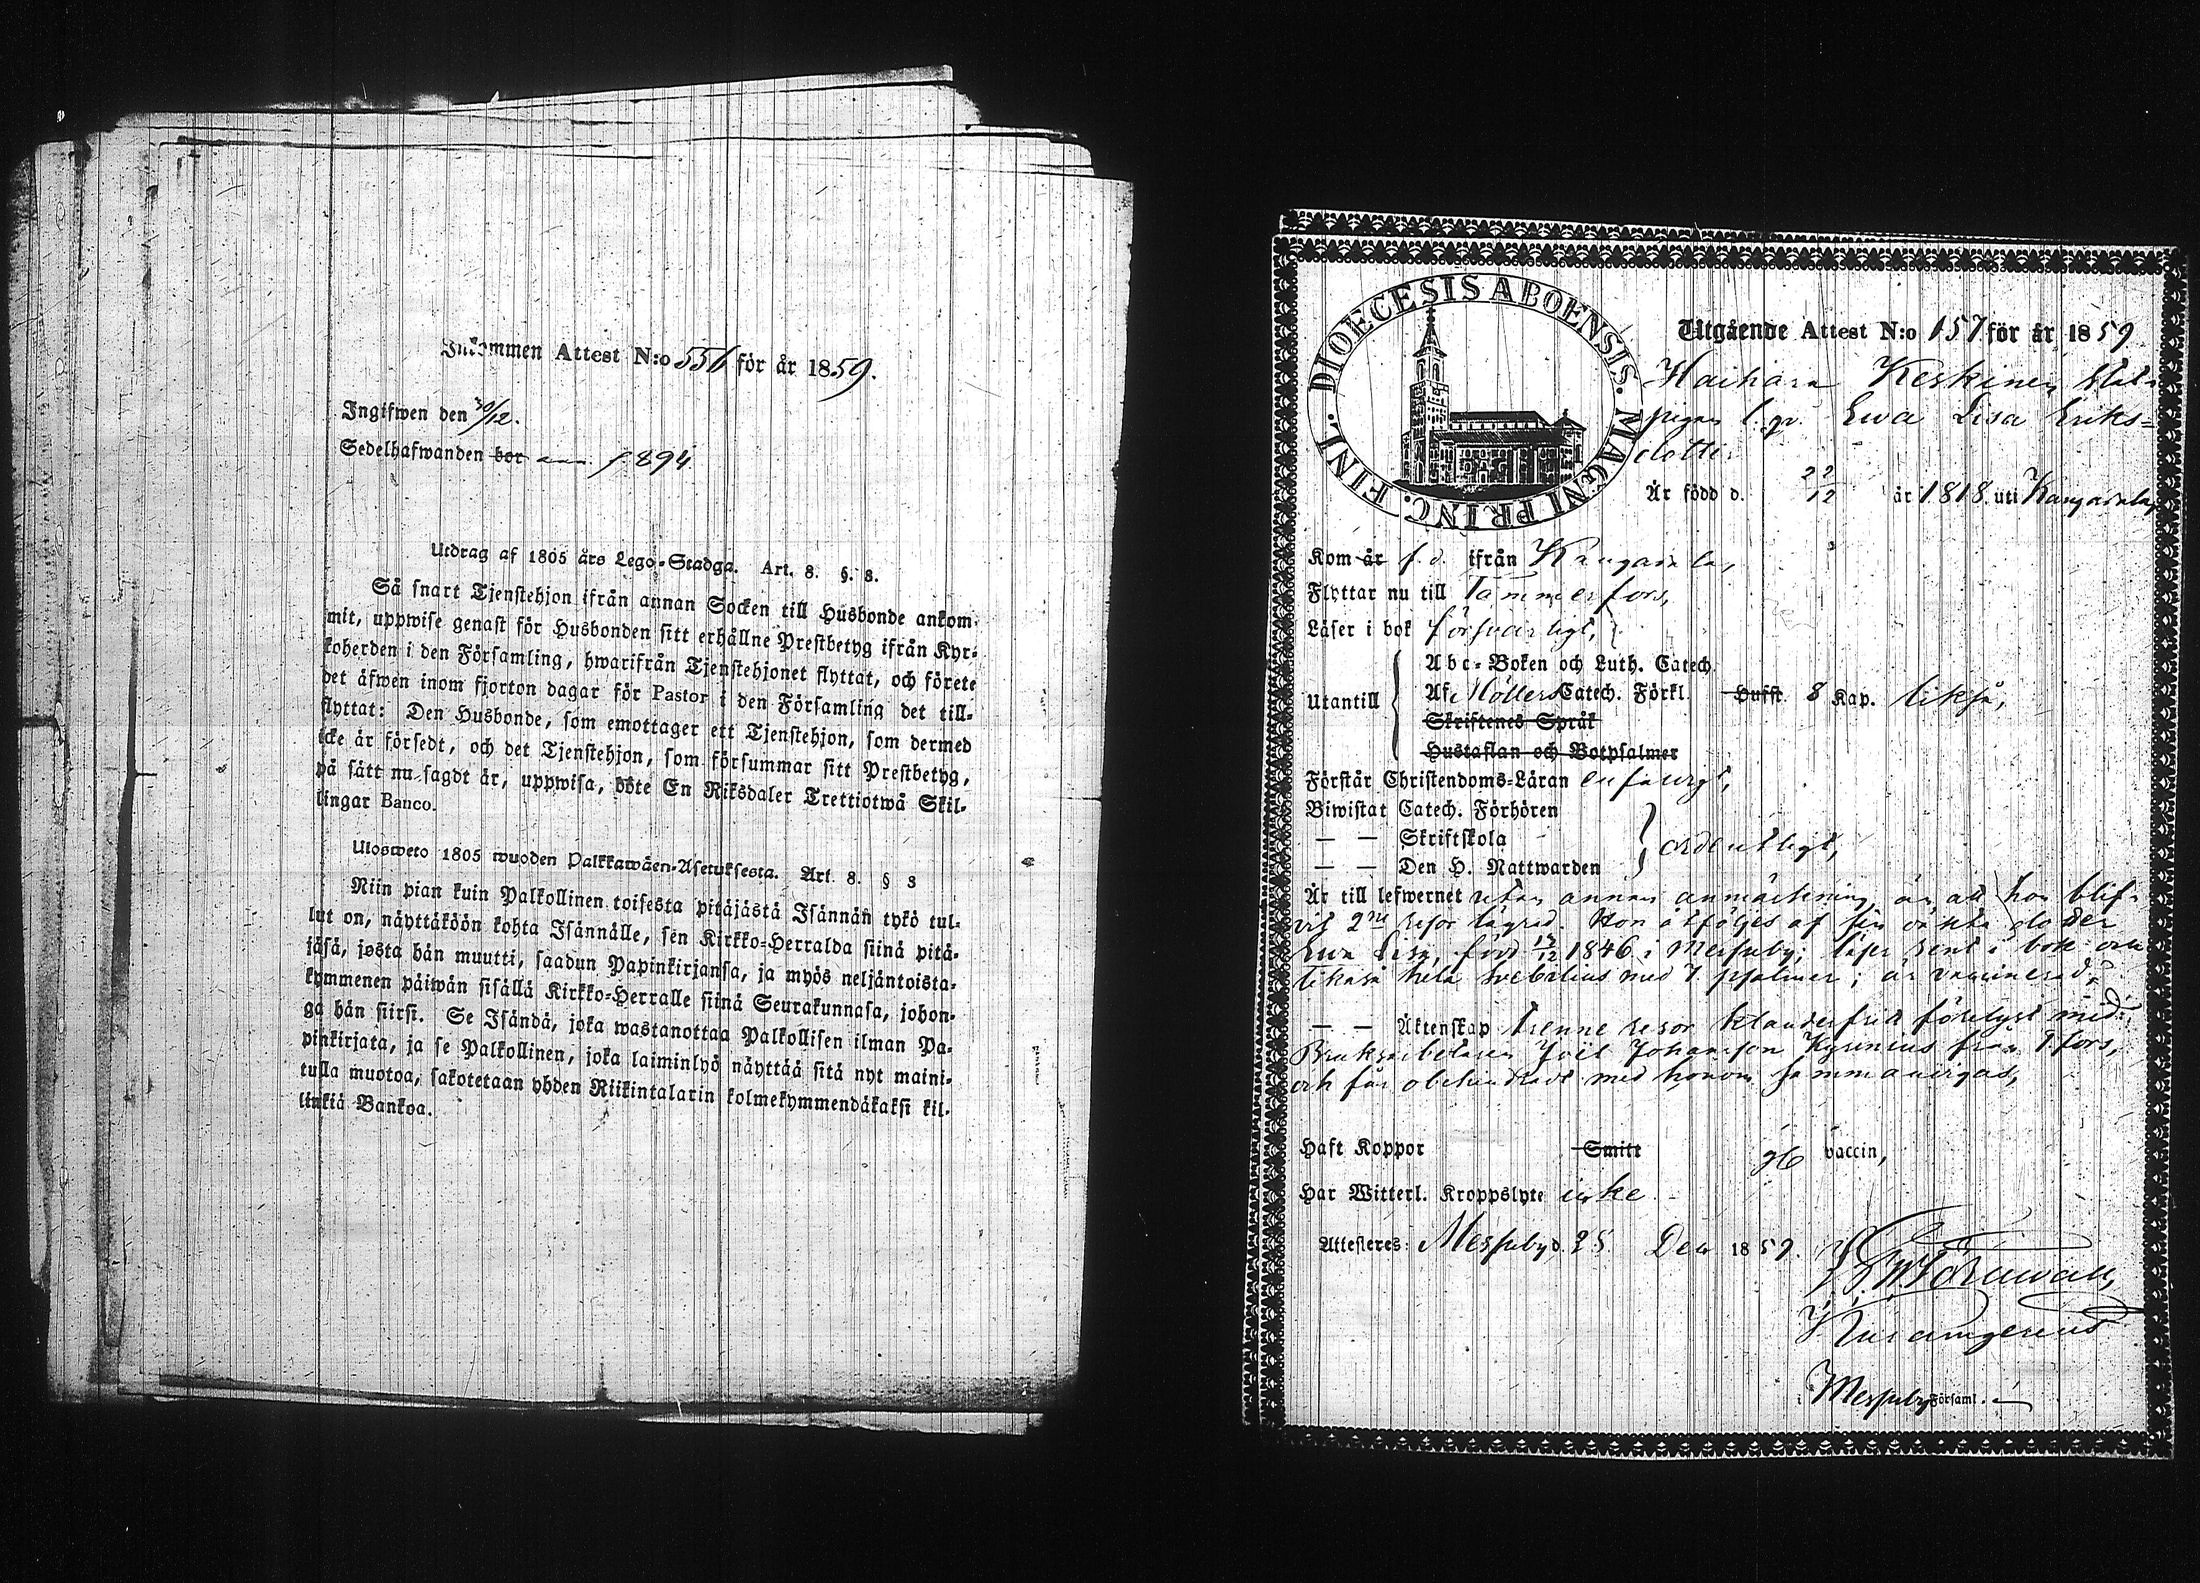 Inkommen Attest N:o 556 för år 1859.
Ingifwen den 30/12.
Sedelhafwanden bor ann f 894
Utdrag af 1805 års Lego-Stadga. Art. 8. §. 3.
Så snart Tjenstehjon ifrån annan Socken till Husbonde ankom-
mit, uppwise genast för Husbonden sitt erhållne Prestbetyg ifrån Kyr-
koherden i den Församling, hwarifrån Tjenstehjonet flyttat, och förete
det äfwen inom fjorton dagar för Pastor i den Församling det till-
flyttat: Den Husbonde, som emottager ett Tjenstehjon, som dermed
icke är försedt, och det Tjenstehjon, som försummar sitt Prestbetyg,
på sätt nu sagdt är, uppwisa, böte En Riksdaler Trettiotwå Skil-
lingar Banco.
Ulosweto 1805 wuoden Palkkawäen-Asetuksesta. Art. 8. § 3
Niin pian kuin Palkollinen toisesta pitäjästä Isännän tykö tul-
lut on, näyttäköön kohta Isännälle, sen Kirkko-Herralda siinä pitä-
jäsä, josta hän muutti, saadun Papinkirjansa, ja myös neljäntoista-
kymmenen päiwän sisällä Kirkko-Herralle siinä Seurakunnasa, johon-
ga hän siirsi. Se Isändä, joka wastanottaa Palkollisen ilman Pa-
pinkirjata, ja se Palkollinen, joka laiminlyö näyttää sitä nyt maini-
tulla muotoa, sakotetaan yhden Riikintalarin kolmekymmendäkaksi kil-
linkiä Bankoa.
DIOECESIS ABOENSIS. MAGNI PRINC. FINL.
Utgående Attest N:o 157 för år 1859
Haihara Keskinen
pigan Ewa Lisa Eriks=
dotter
Är född d. 22/12 år 1818 uti Kangasala,
Kom år f. d. ifrån Kangasala,
Flyttar nu till Tammerfors,
Läser i bok försvarligt,
Utantill
Abc-Boken och Luth. Catech.
Af Möllers Catech. Förkl. Hufst. 8 Kap. likså,
Skriftenes Språk
Hustaflan och Botpsalmer
Förstår Christendoms-Läran enfaldigt,
Biwistat Catech. Förhören
— — Skriftskola
— — Den H. Nattwarden
ordentligt,
Är till lefwernet utan annan anmärkning, än att hon blif-
vit 2ne resor lägrad. Hon åtföljes af sin oäkta dotter
Eva Lisa, född 17/12 1846 i Messuby; läser rent i bok och
likaså hela Svebilius med 7 psalmer; är vaccinerad.
— — Äktenskap trenne resor klanderfritt förelyst med
Bruksarbetaren Joël Johansson Kyrenius från T:fors,
och får obehindradt med honom sammanvigas,
Haft Koppor Smitt vaccin,
Har Witterl. Kroppslyte icke
Attesteras: Messuby d. 25 Dec 1859.
i Messuby Församl.